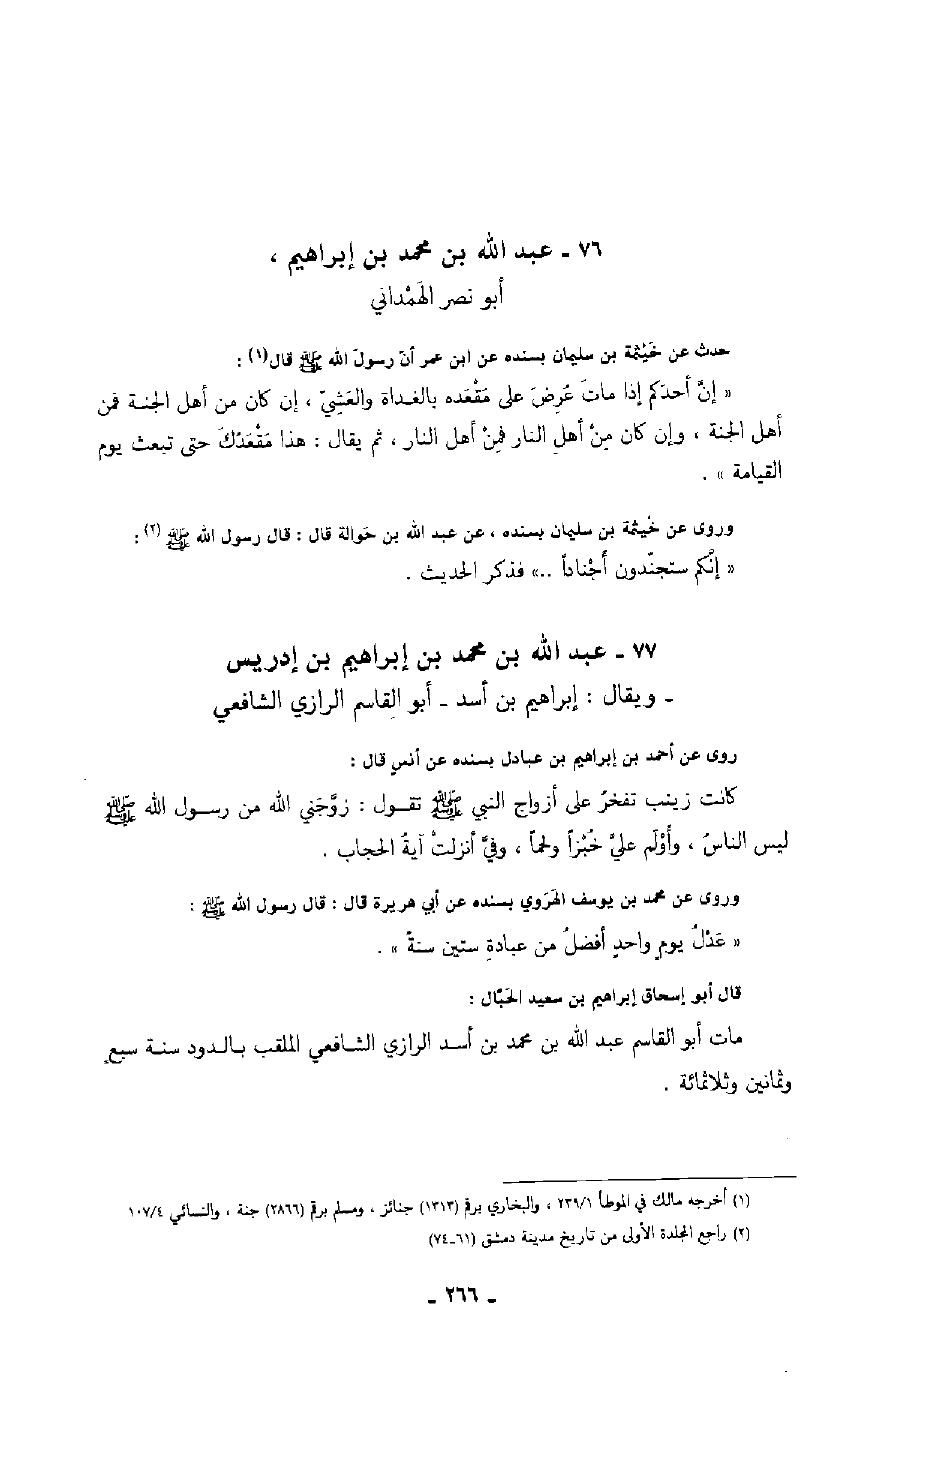 ٧٦ ـ عبد الله بن محمد بن إبراهيم ،
أبو نصر الهَمْداني
حدث عن خَيْثمة بن سليمان بسنده عن ابن عمر أنّ رسولَ الله ﷺ قال(١) :
« إنَّ أحدَكم إذا ماتَ عُرِضَ على مَقْعَده بالغداة والعَشِيّ ، إن كان من أهل الجنة فمن
أهل الجنة ، وإن كان مِنْ أهلِ النار فمِنْ أهل النار ، ثم يقال : هذا مَقْعَدُكَ حتى تبعث يوم
القيامة » .
وروى عن خَيْثمة بن سليمان بسنده ، عن عبد الله بن حَوالة قال : قال رسول الله ﷺ (٢) :
« إنَّكم ستجنّدون أَجْناداً .. » فذكر الحديث .
٧٧ ـ عبد الله بن محمد بن إبراهيم بن إدريس
ـ ويقال : إبراهيم بن أسد ـ أبو القاسم الرازي الشافعي
روى عن أحمد بن إبراهيم بن عبادل بسنده عن أنسٍ قال :
كانت زينب تفخرُ على أزواج النبي ﷺ تقول : زوَّجَني الله من رسول الله ﷺ
ليس الناسُ ، وأَوْلَم عليَّ خُبْزاً ولحماً ، وفيَّ أنزلتْ آيةُ الحجاب .
وروى عن محمد بن يوسف الهَرَوي بسنده عن أبي هريرة قال : قال رسول الله ﷺ :
« عَدْلُ يومٍ واحدٍ أفضلُ من عبادةِ ستين سنةً » .
قال أبو إسحاق إبراهيم بن سعيد الحَبَّال :
مات أبو القاسم عبد الله بن محمد بن أسد الرازي الشافعي الملقب بالدود سنة سبعٍ
وثمانين وثلاثمائة .
(١) أخرجه مالك في الموطأ ٢٣٩/١ ، والبخاري برقم (١٣١٣) جنائز ، ومسلم برقم (٢٨٦٦) جنة ، والنسائي ١٠٧/٤
(٢) راجع المجلدة الأولى من تاريخ مدينة دمشق (٦١-٧٤)
ـ ٢٦٦ ـ